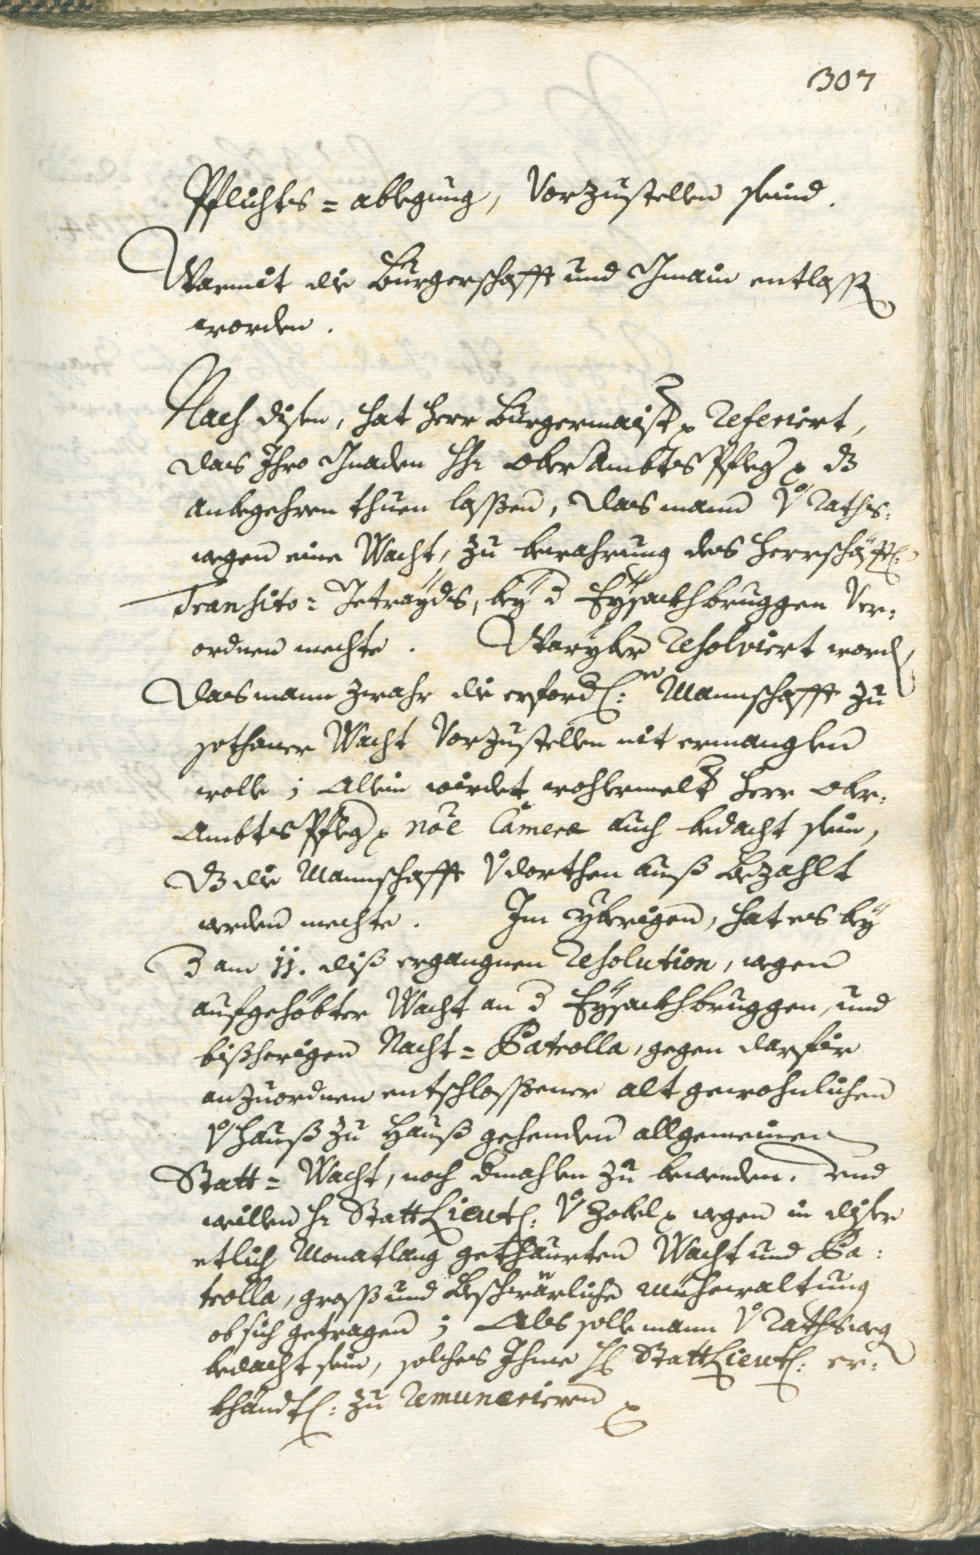 307
Pflichts=ablegung, Vorzustellen seind.
Warmit die Burgerschafft und Gmain entlassen
worden.
Nach disen, hat Herr Burgermaister Referiert,
das Ihro Gnaden Hr: Ober Ambts Pfleg dz
anbegehren thuen lassen, das mann V Raths=
wegen eine Wacht, zu bewahrung des Herrschafftl:
Transito= Getrayds, bey d Eysackhbruggen Ver=
ordnen mechte. Warýber Resolviert word
Das mann zwahr die erforderl: Mannschafft zu
sothaner Wacht Vorzustellen nit ermanglen
wolle; Allein wirdet wohlermelt Herr Ober=
Ambts Pfleg noe Camera auch bedacht sein,
Dz die Mannschafft V dorthen auß bezahlt
werden mechte. Im ýbrigen, hat es beý
d am 11. diß ergangnen Resolution, wegen
aufgehöbter Wacht an d Eysackhbruggen, und
bißherigen Nacht= Patrolla, gegen darfir
anzuordnen entschlossener alt gewohnlichen
V Hauß zu Hauß gehenden allgemeinen
Statt= Wacht, noch dmahlen zu bewenden. Und
weillen Hr Statt Lieut: V Zobel wegen in diser
etlich Monatlang gethaurten Wacht und Pa=
trolla, groß und beschwärliche Müehewaltung
ob sich getragen; Als solle mann V Raths weg
bedacht sein, solches Ihme H Statt Lieut: er=
khandtl: zu Remunerieren